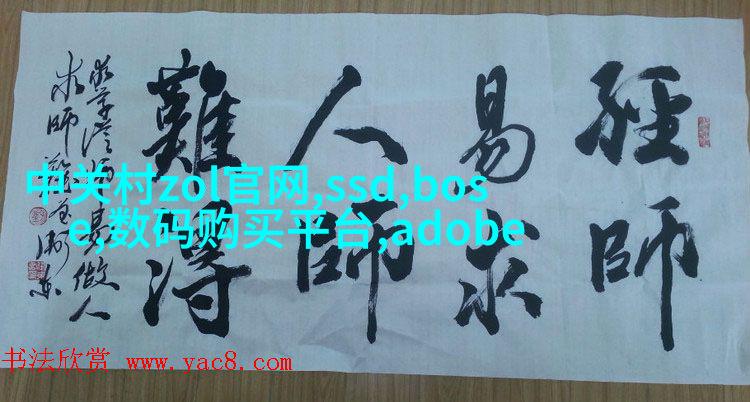 經師
易求
人師
難得
求師
做人
中关村zol官网,ssd,bos
e,数码购买平台,adobe
书法欣赏 www.yac8.com